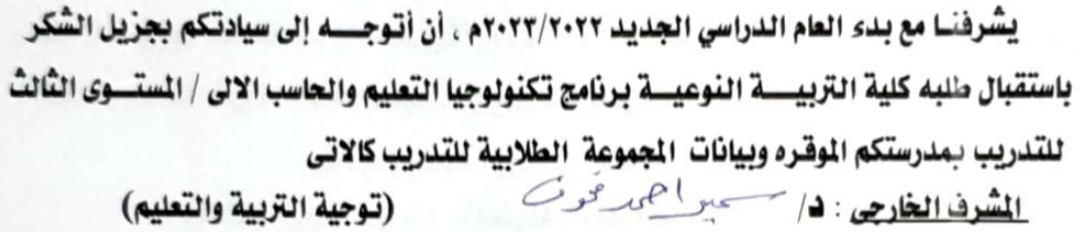 يشرفنا مع بدء العام الدراسي الجديد ٢٠٢٣/٢٠٢٢م ، أن أتوجه إلى سيادتكم بجزيل الشكر
باستقبال طلبه كلية التربية النوعية برنامج تكنولوجيا التعليم والحاسب الالى / المستوى الثالث
للتدريب بمدرستكم الموقره وبيانات المجموعة الطلابية للتدريب كالاتى
المشرف الخارجى : د/ سمير احمد (توجية التربية والتعليم)